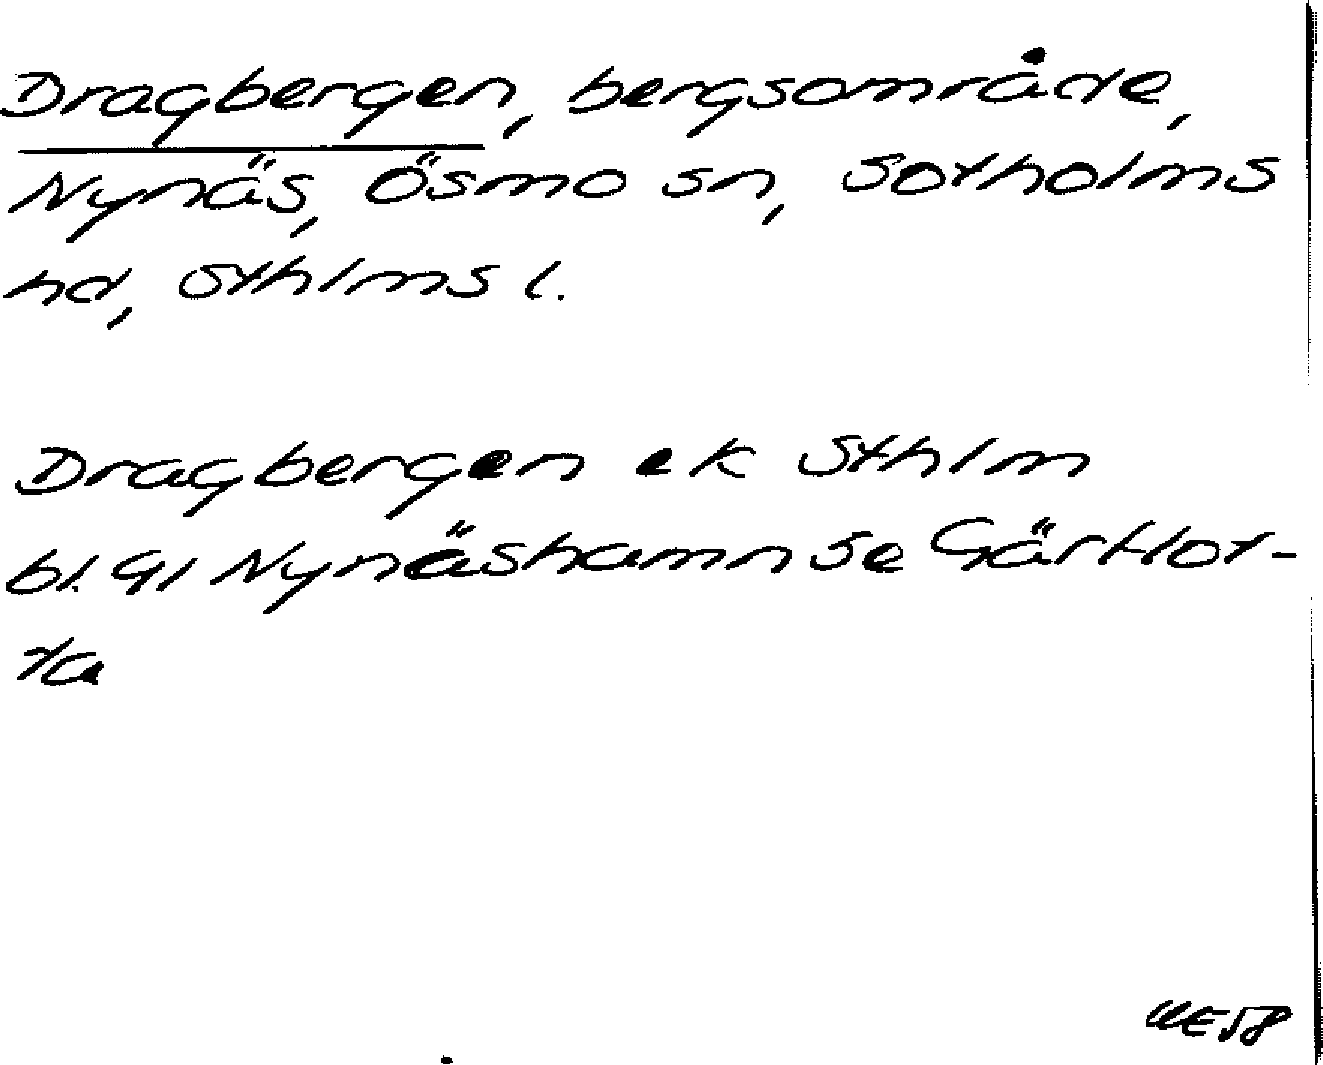 Dragbergen, bergsområde,
Nynäs, Ösmo sn, Sotholms
hd, Sthlms l.
Dragbergen ek Sthlm
bl. 91 Nynäshamn se Gärtlot-
ta
WE 58